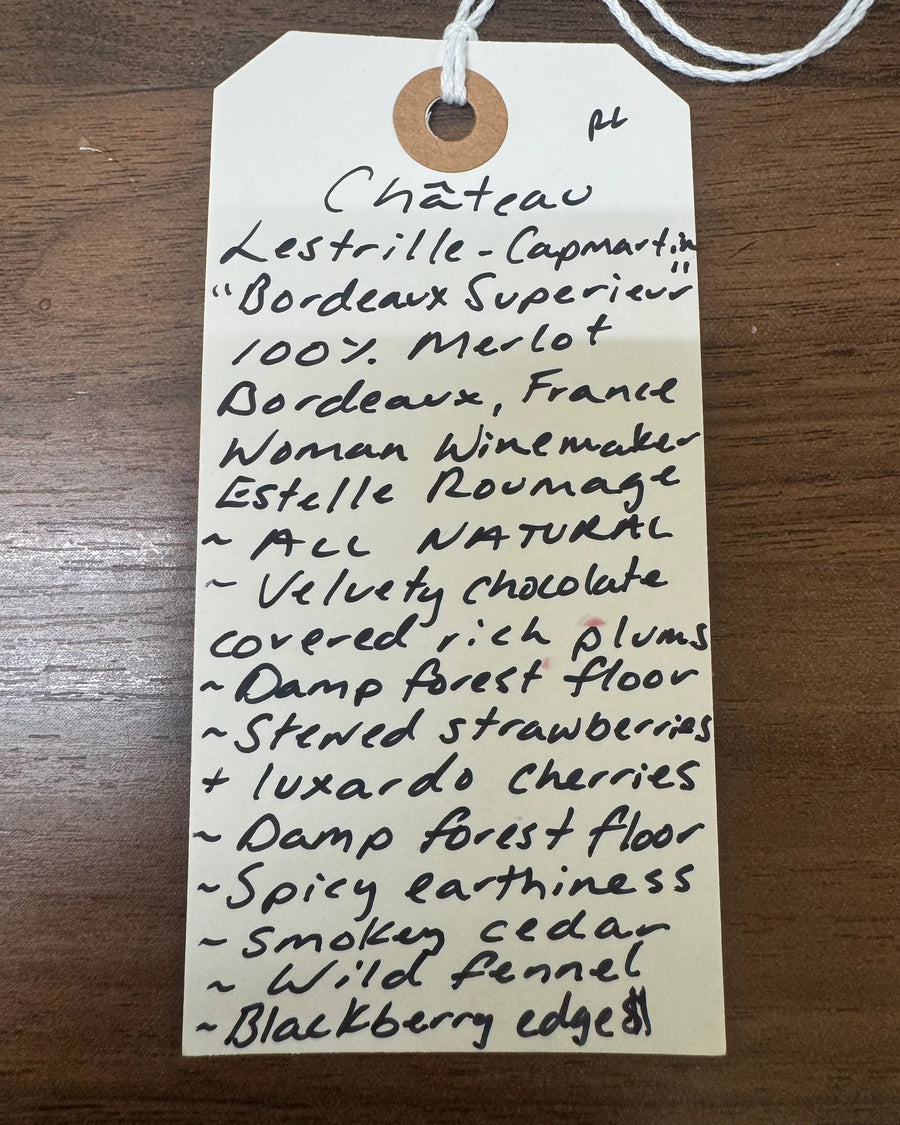 RL
Château
Lestrille - Capmartin
"Bordeaux Superieur"
100% Merlot
Bordeaux, France
Woman Winemaker
Estelle Roumage
~ ALL NATURAL
~ Velvety chocolate
covered rich plums
~ Damp forest floor
~ Stewed strawberries
+ luxardo cherries
~ Damp forest floor
~ Spicy earthiness
~ smokey cedar
~ Wild fennel
~ Blackberry edges